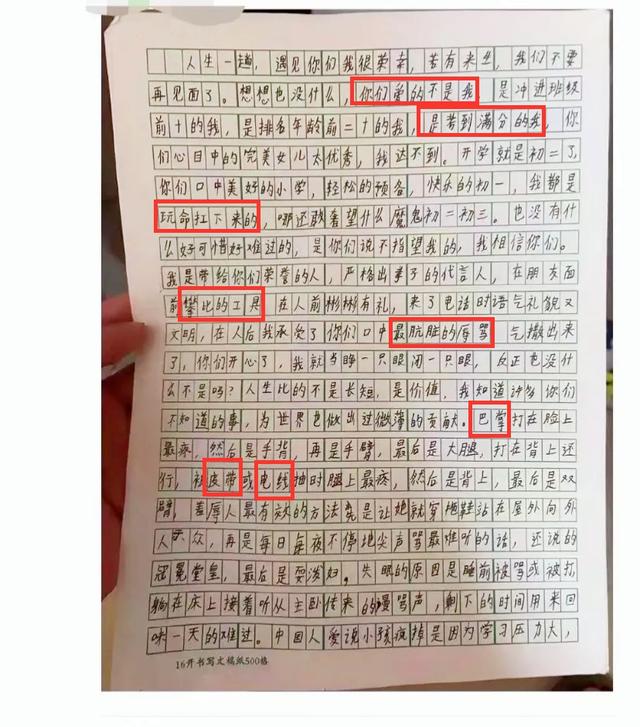 人生一趟，遇见你们我很荣幸，若有来生，我们不要
再见面了。想想也没什么，你们爱的不是我，是冲进班级
前十的我，是排名年龄前二十的我，是考到满分的我，你
们心目中的完美女儿太优秀，我达不到。开学就是初二了，
你们口中美好的小学，轻松的预备，快乐的初一，我都是
玩命扛下来的，哪还敢奢望什么魔鬼初二初三。也没有什
么好可惜好难过的，是你们说不指望我的，我相信你们。
我是带给你们荣誉的人，严格出事了的代言人，在朋友面
前攀比的工具，在人前彬彬有礼，来了电话时语气礼貌又
文明，在人后我承受了你们口中最肮脏的辱骂，气撒出来
了，你们开心了，我就当睁一只眼闭一只眼，反正也没什
么不是吗？人生比的不是长短，是价值，我知道许多你们
不知道的事，为世界也做出过微薄的贡献。巴掌打在脸上
最疼，然后是手背，再是手臂，最后是大腿，打在背上还
行，被皮带或电线抽时腿上最疼，然后是背上，最后是双
臂，羞辱人最有效的方法竟是让她就穿拖鞋站在屋外向外
人示众，再是每日每夜不停地尖声骂最难听的话，还说的
冠冕堂皇，最后是耍泼妇。失眠的原因是睡前被骂或被打，
躺在床上接着听从主卧传来的谩骂声，剩下的时间用来回
味一天的难过。中国人爱说小孩疯掉是因为学习压力大，
16开书写文稿纸500格